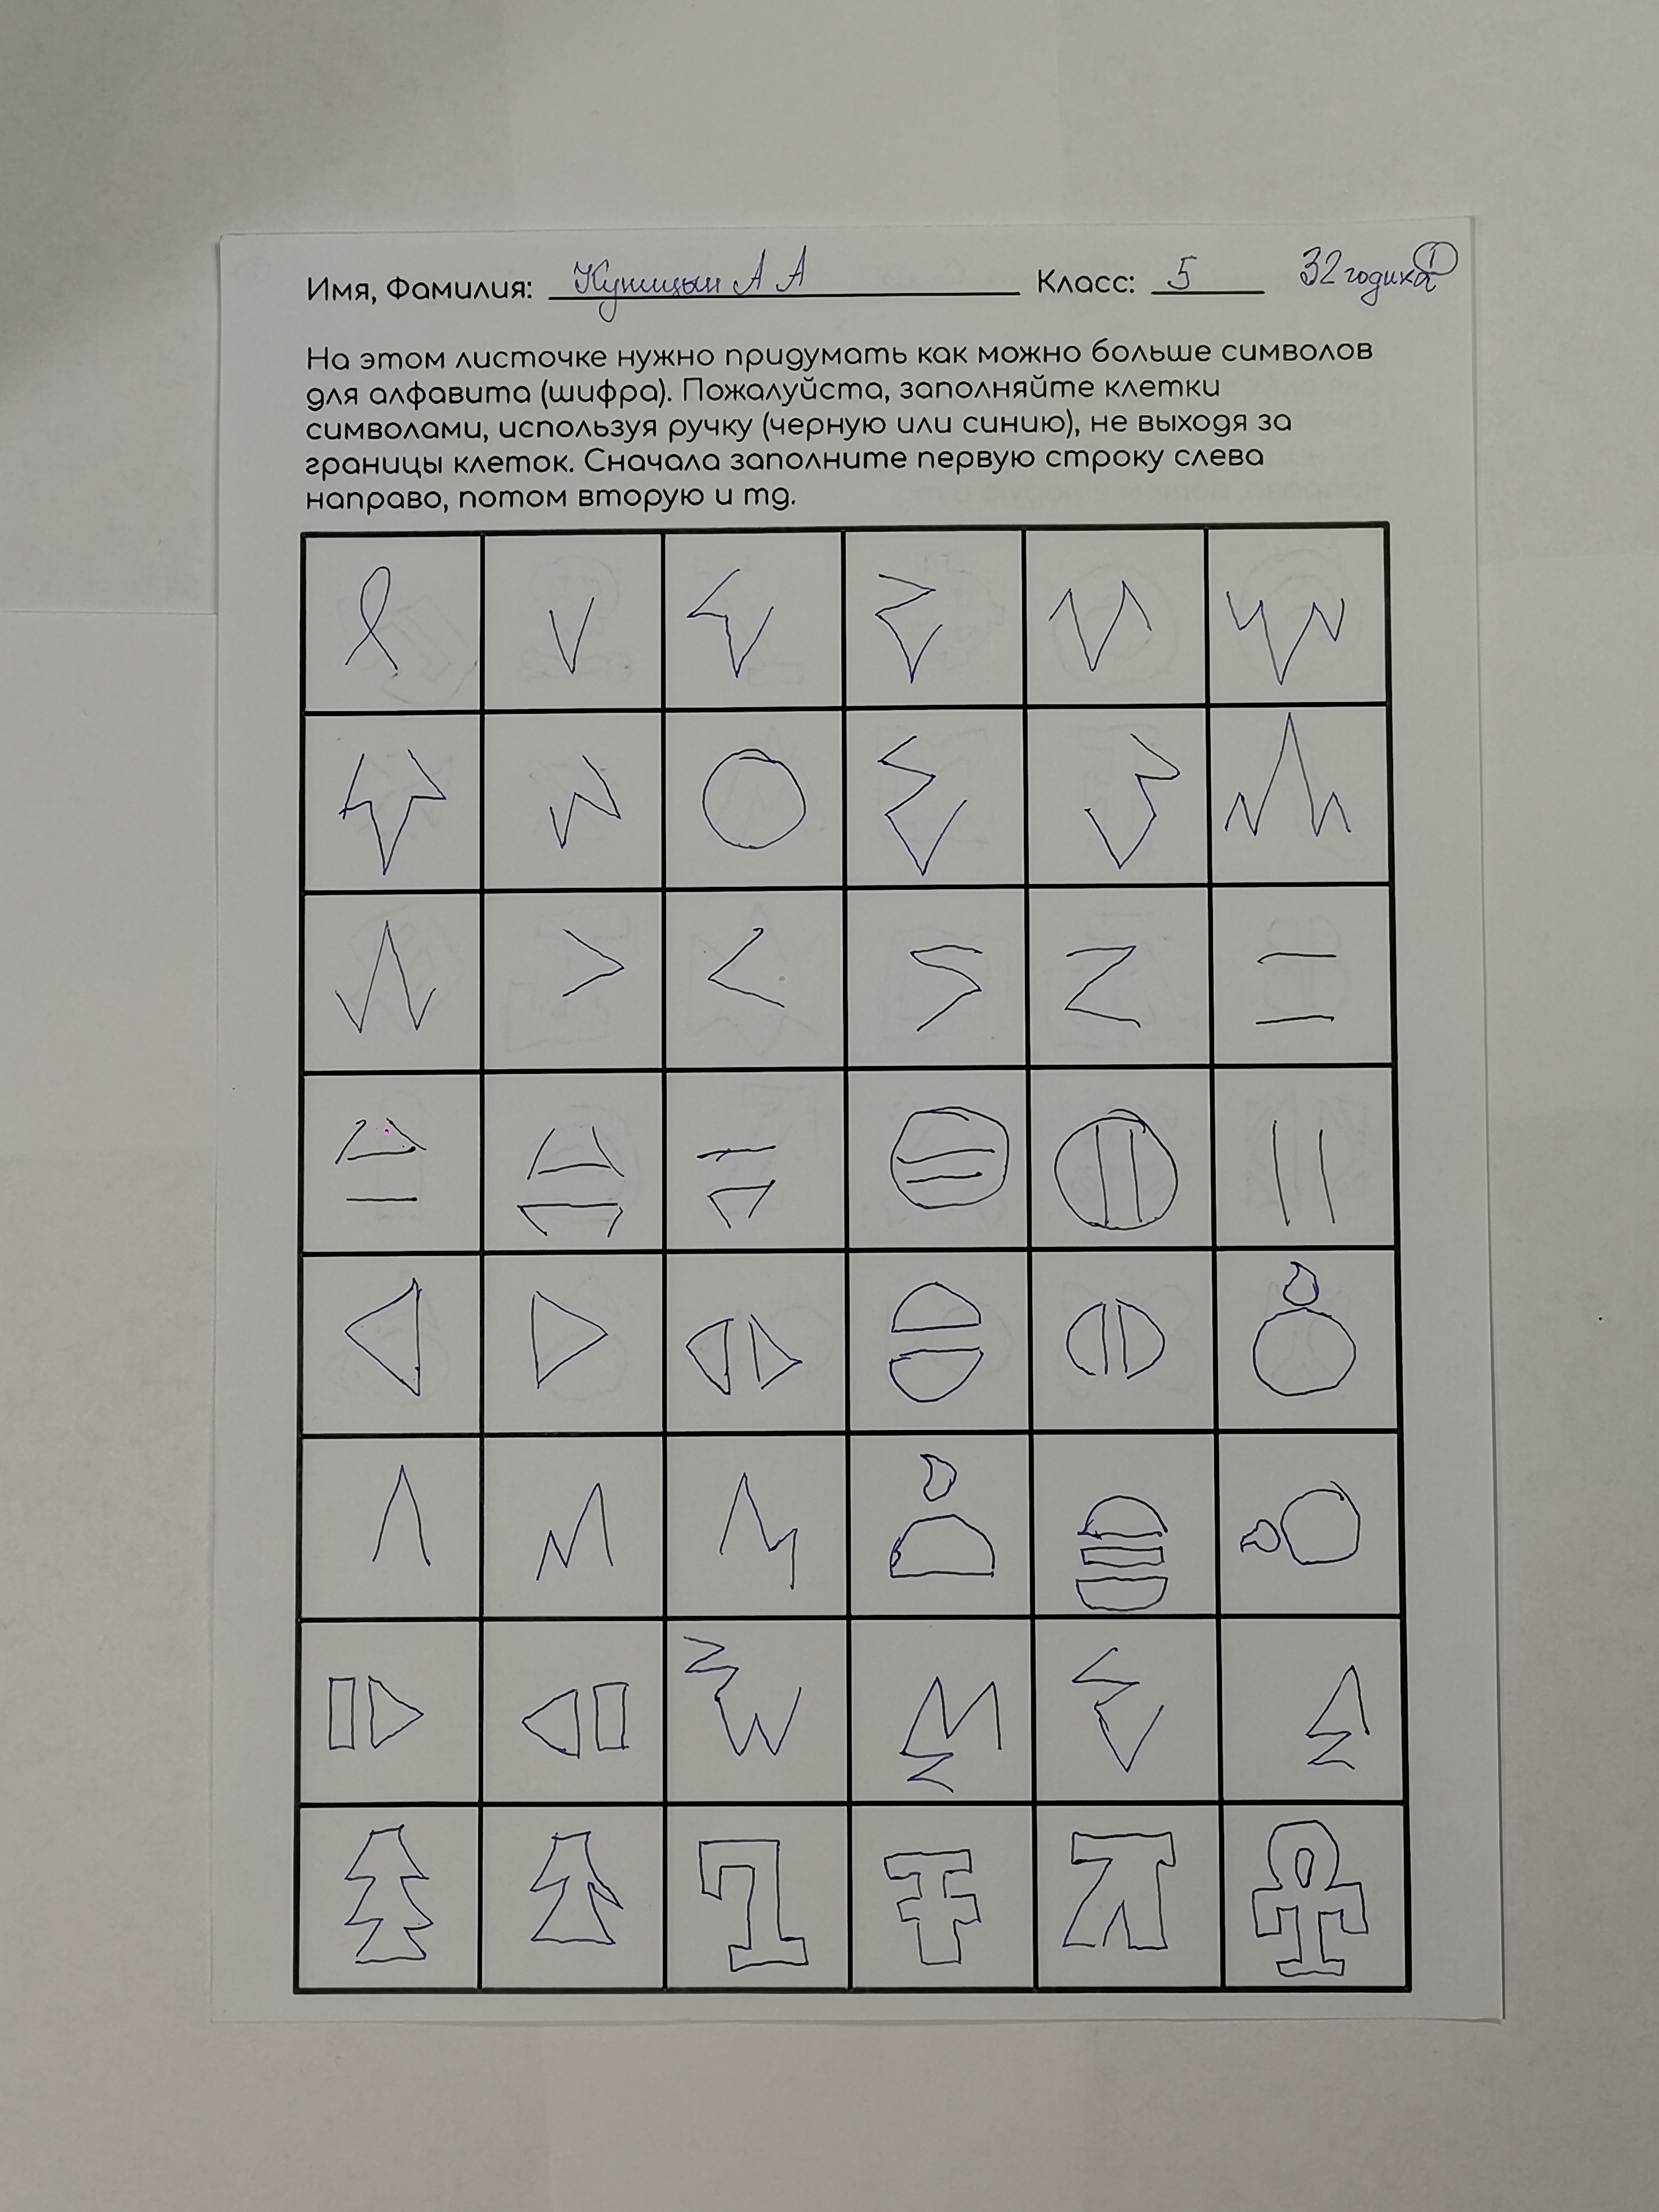 Имя, Фамилия: Куницын А А Класс: 5 32 годика 1
На этом листочке нужно придумать как можно больше символов
для алфавита (шифра). Пожалуйста, заполняйте клетки
символами, используя ручку (черную или синию), не выходя за
границы клеток. Сначала заполните первую строку слева
направо, потом вторую и тд.